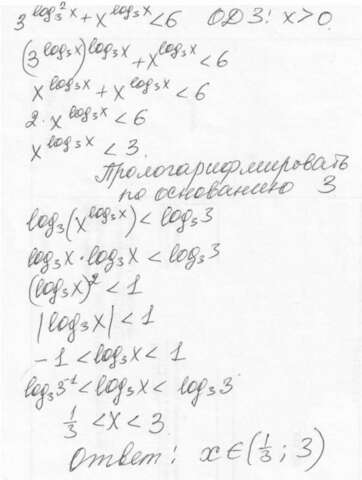 3^{log₃²x} + x^{log₃x} < 6   ОДЗ: x>0.
(3^{log₃x})^{log₃x} + x^{log₃x} < 6
x^{log₃x} + x^{log₃x} < 6
2·x^{log₃x} < 6
x^{log₃x} < 3.
Прологарифмировать
по основанию 3
log₃(x^{log₃x}) < log₃3
log₃x·log₃x < log₃3
(log₃x)² < 1
|log₃x| < 1
-1 < log₃x < 1
log₃3⁻¹ < log₃x < log₃3
1/3 < x < 3
Ответ: x∈(1/3; 3)